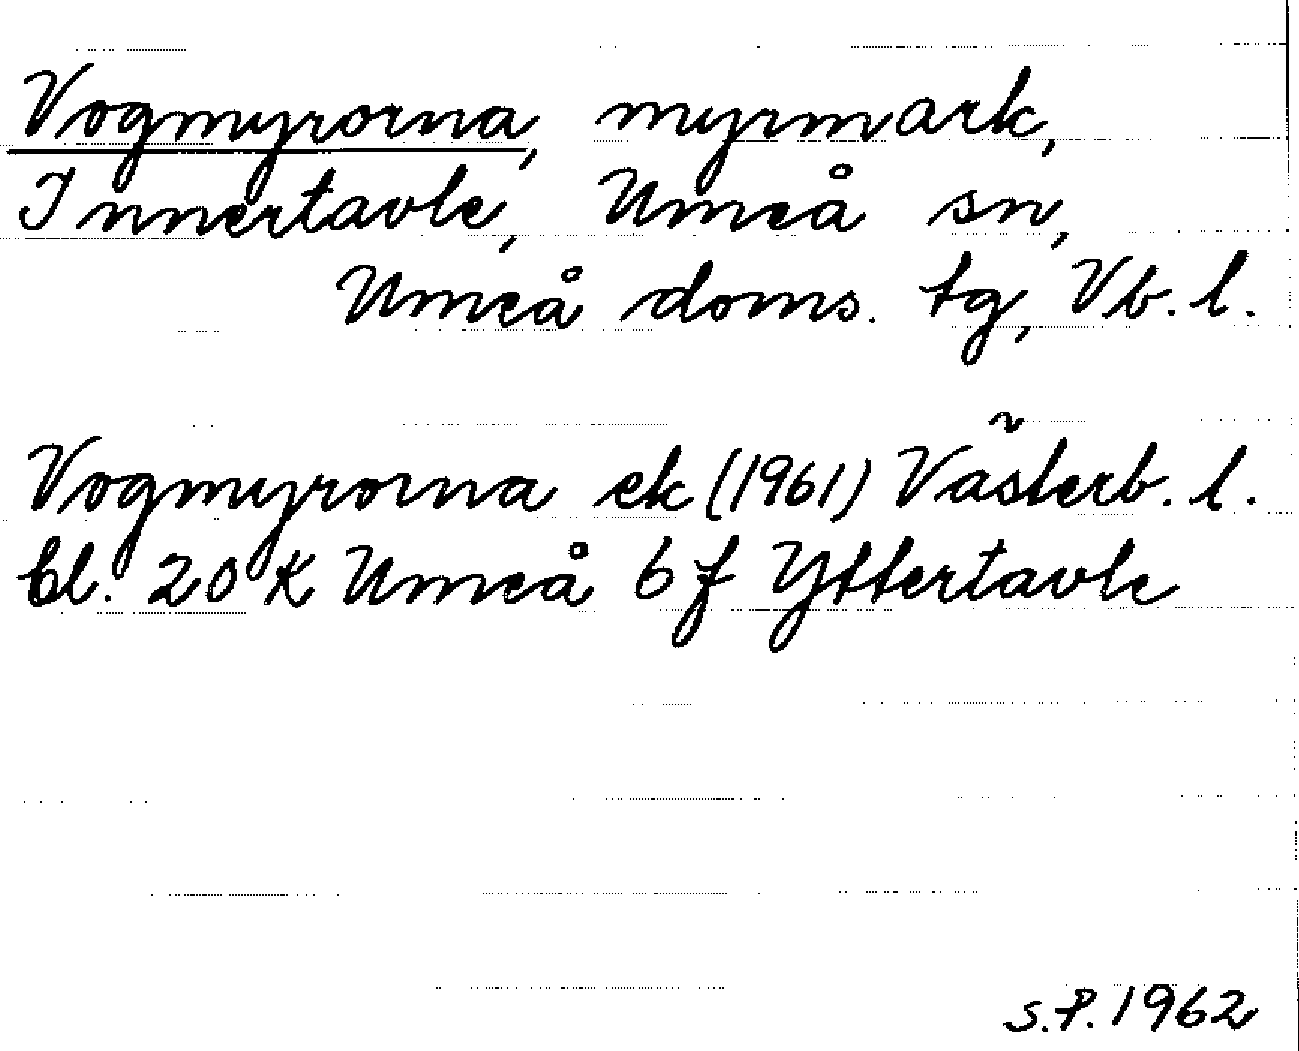 Vogmyrorna, myrmark,
Innertavle, Umeå sn,
Umeå doms. tg, Vb. l.
Vogmyrorna ek (1961) Västerb. l.
bl. 20 K Umeå 6 f Yttertavle
S.P. 1962